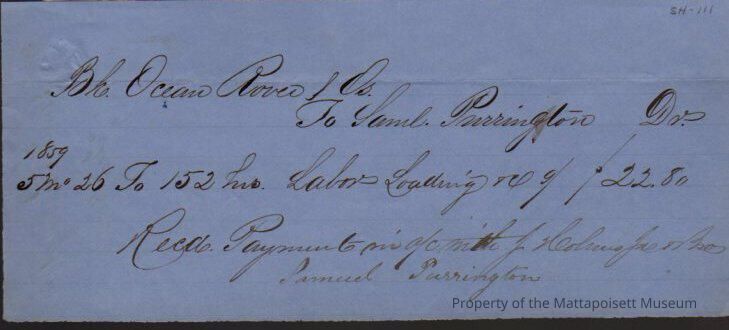 SH-111
Bk. Ocean Rover & Os.
To Saml. Purrington Dr.
1859
5 mo 26 To 152 hrs. Labor Loading &c $22.80
Recd. Payment in a/c with J Holmes Jr & Bro
Samuel Purrington
Property of the Mattapoisett Museum